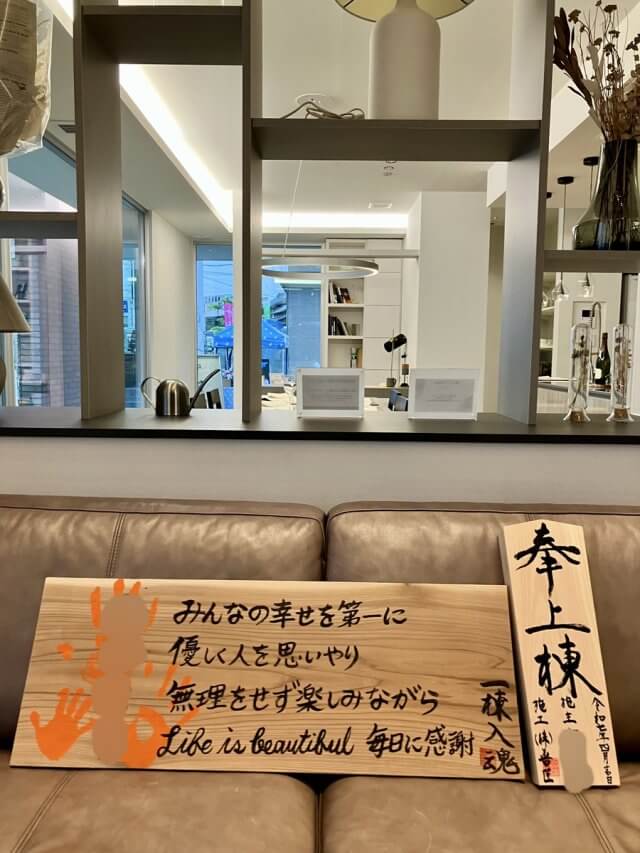 みんなの幸せを第一に
優しく人を思いやり
無理をせず楽しみながら
Life is beautiful 毎日に感謝
一棟入魂
奉上棟
施主
施工(株)